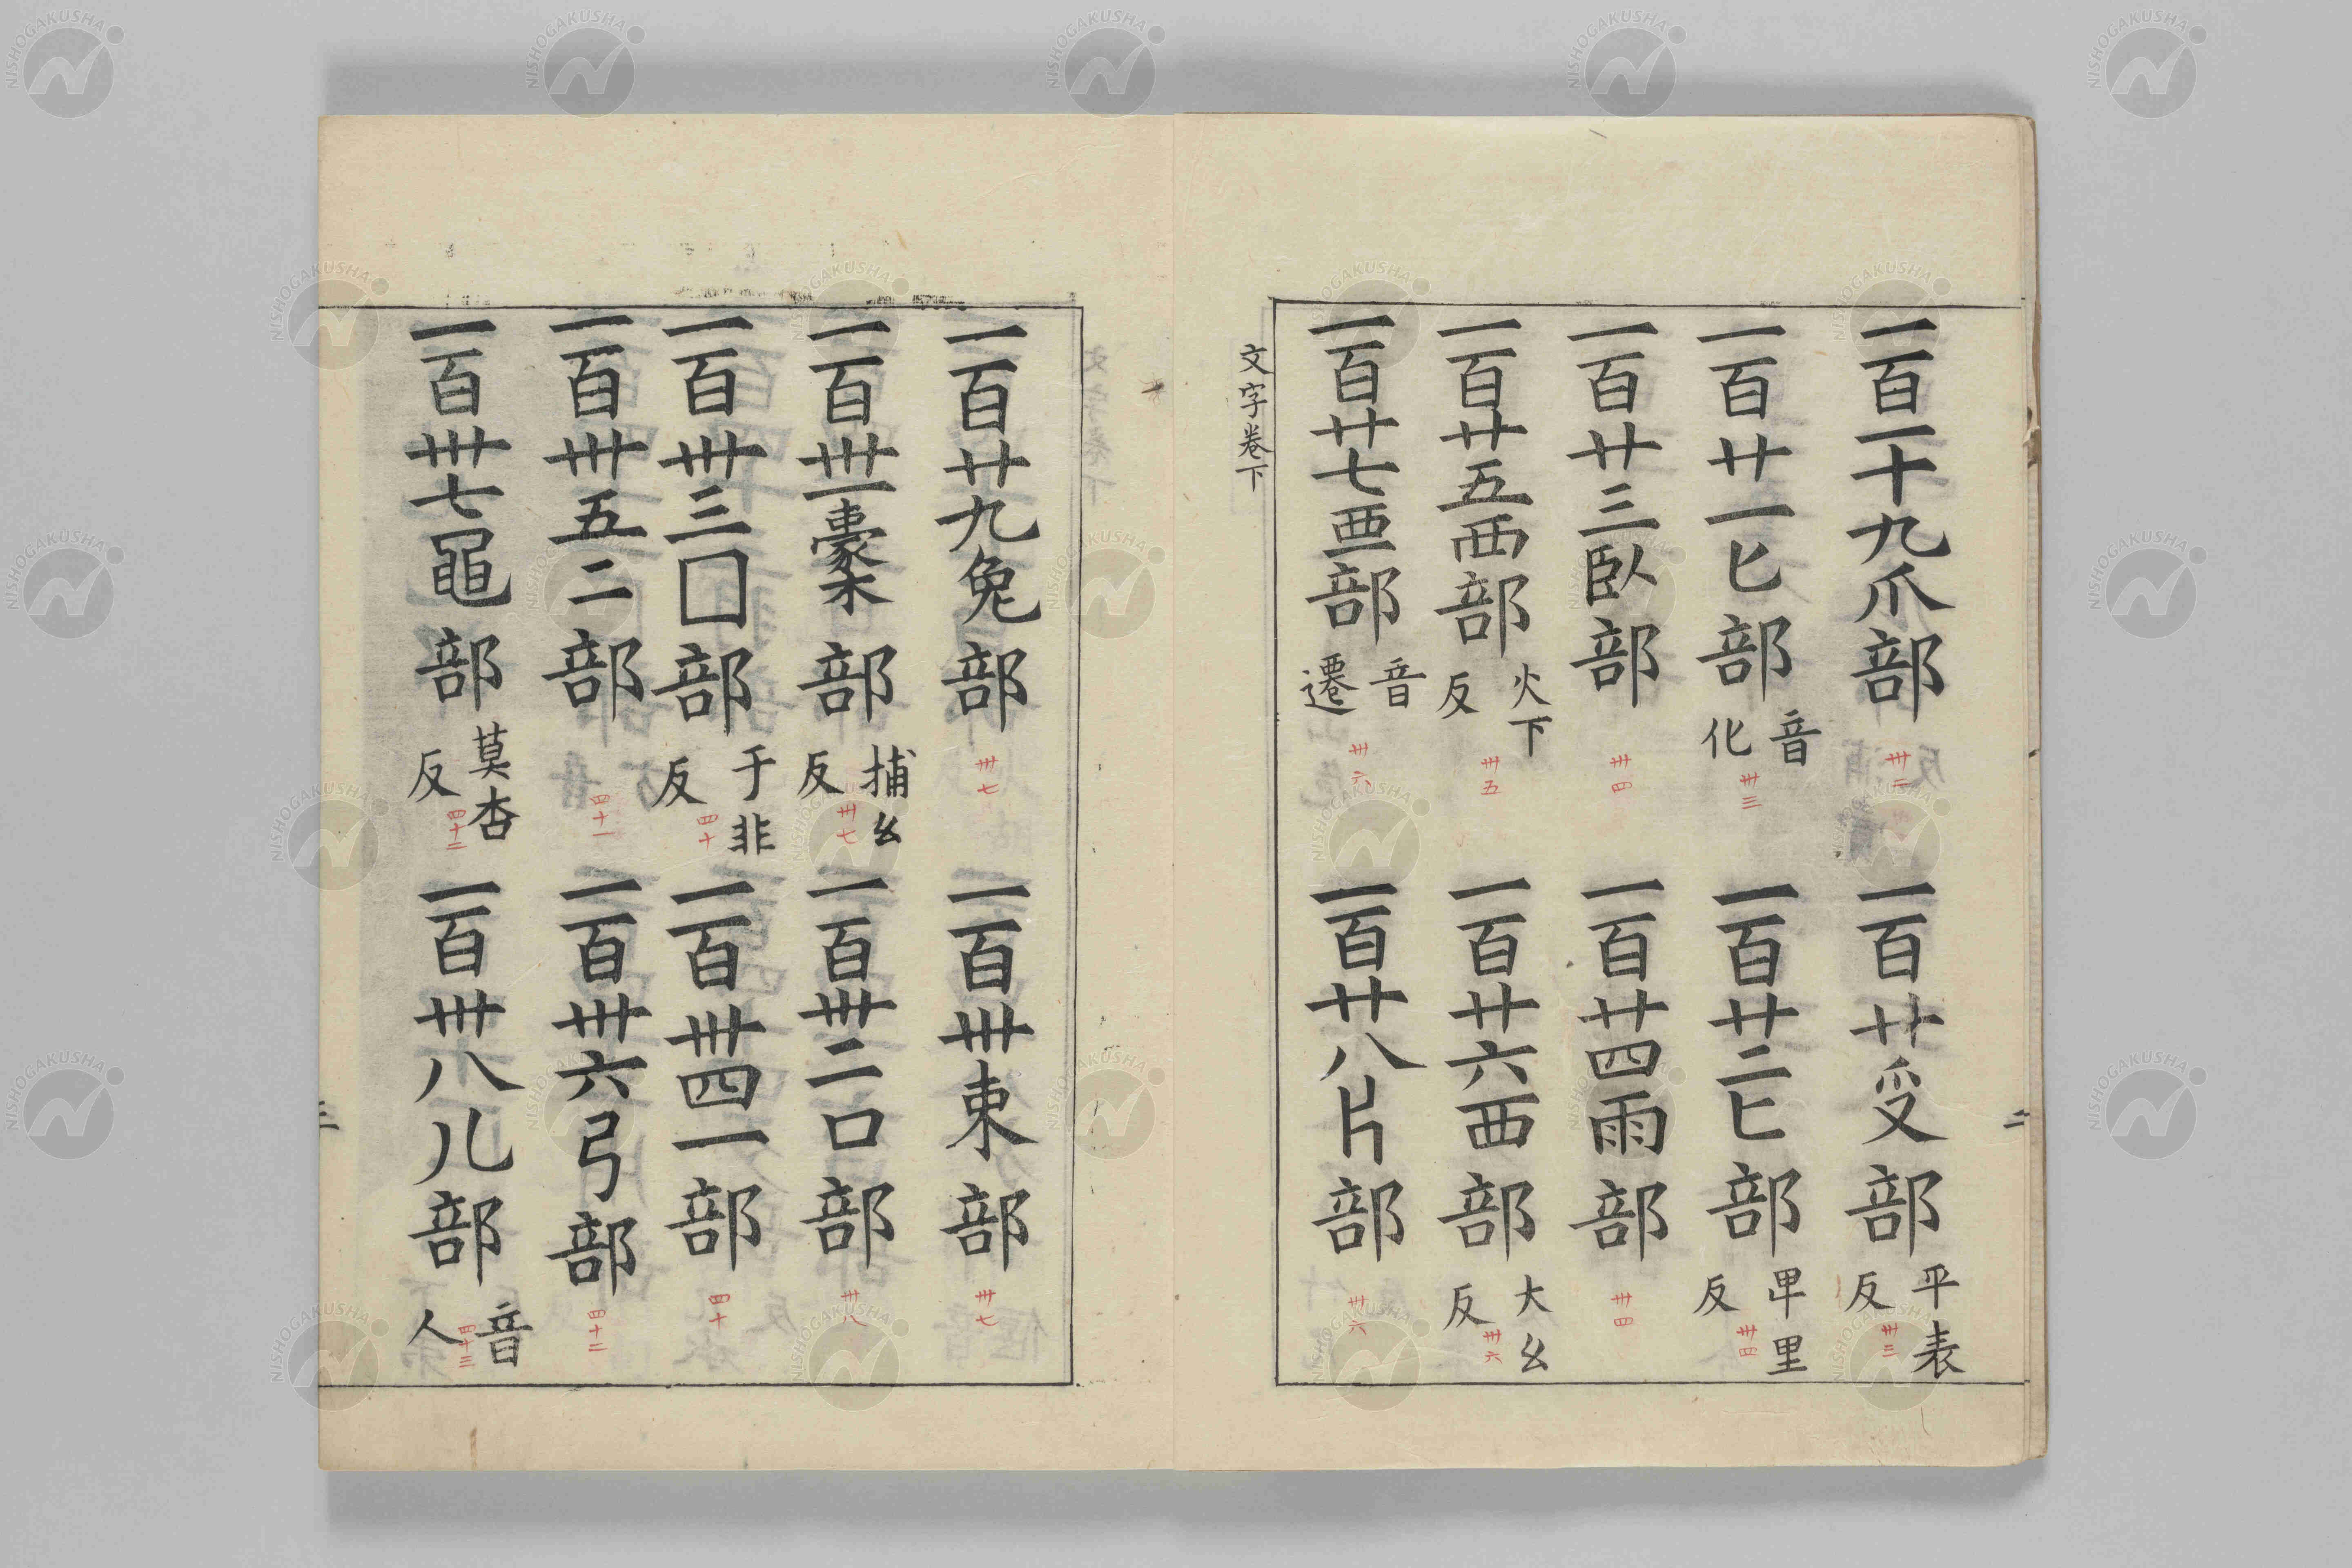 一百一十九爪部 卅二
一百廿𠬪部 平表反 卅三
一百廿一匕部 音化 卅三
一百廿二匸部 甲里反 卅四
一百廿三臥部 卅四
一百廿四雨部 卅四
一百廿五襾部 火下反 卅五
一百廿六西部 大幺反 卅六
一百廿七覀部 音遷 卅六
一百廿八片部 卅六
文字卷下
二
一百廿九兔部 卅七
一百卅束部 卅七
一百卅一橐部 捕幺反 卅七
一百卅二口部 卅八
一百卅三囗部 于非反 四十
一百卅四一部 四十
一百卅五二部 四十一
一百卅六弓部 四十二
一百卅七黽部 莫杏反 四十二
一百卅八儿部 音人 四十三
三
NISHOGAKUSHA